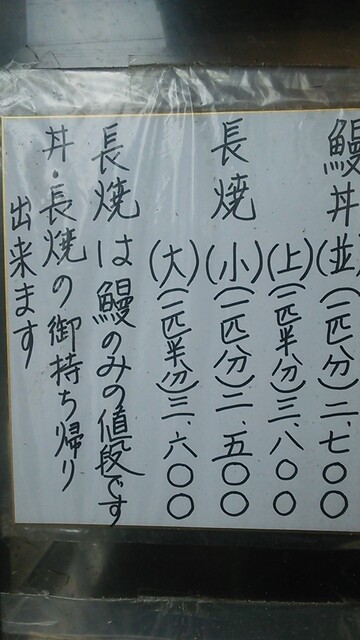 鰻丼(並)(一匹分)二、七〇〇
(上)(一匹半分)三、八〇〇
長焼(小)(一匹分)二、五〇〇
(大)(一匹半分)三、六〇〇
長焼は鰻のみの値段です
丼・長焼の御持ち帰り
出来ます